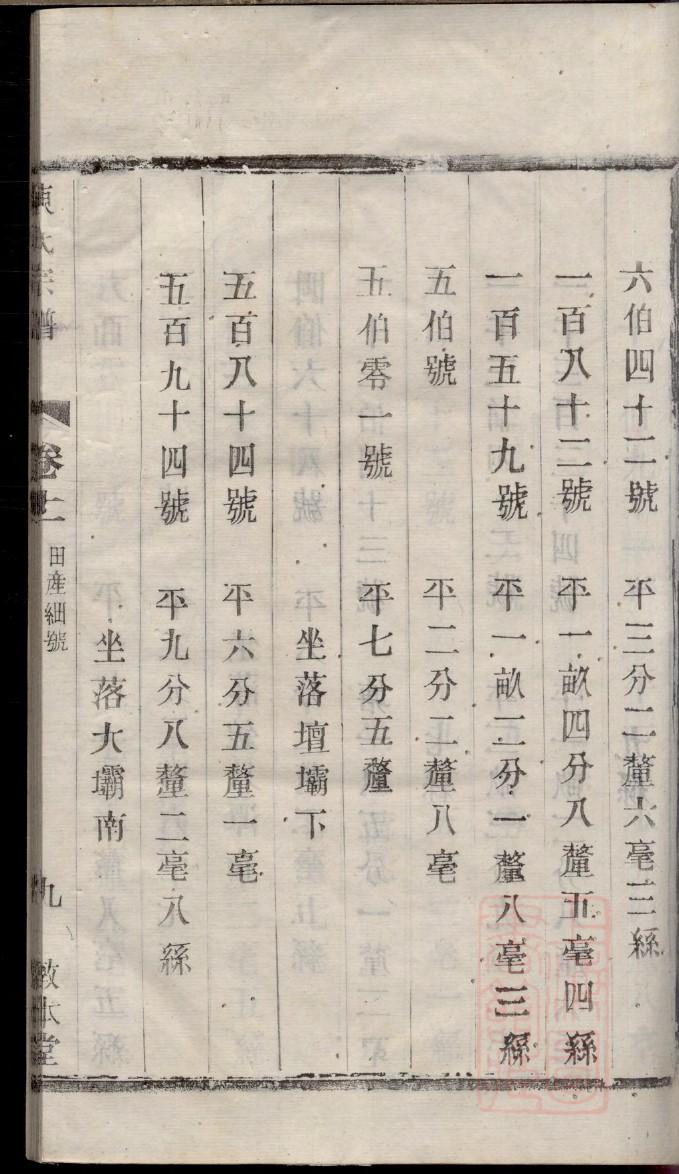 六伯四十二號 平三分二釐六毫三絲
一百八十二號 平一畝四分八釐五毫四絲
一百五十九號 平一畝二分一釐八毫三絲
五伯號 平二分二釐八毫
五伯零一號 平七分五釐
坐落壇壩下
五百八十四號 平六分五釐一毫
五百九十四號 平九分八釐二毫八絲
坐落大壩南
陳氏宗譜 卷上 田產細號 九 敦本堂